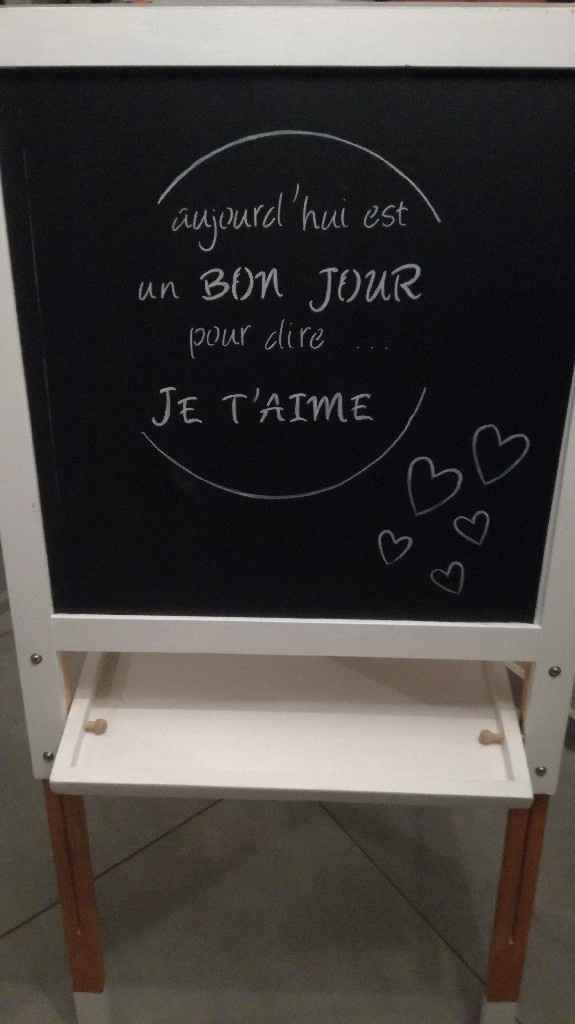 aujourd'hui est
un BON JOUR
pour dire ...
JE T'AIME